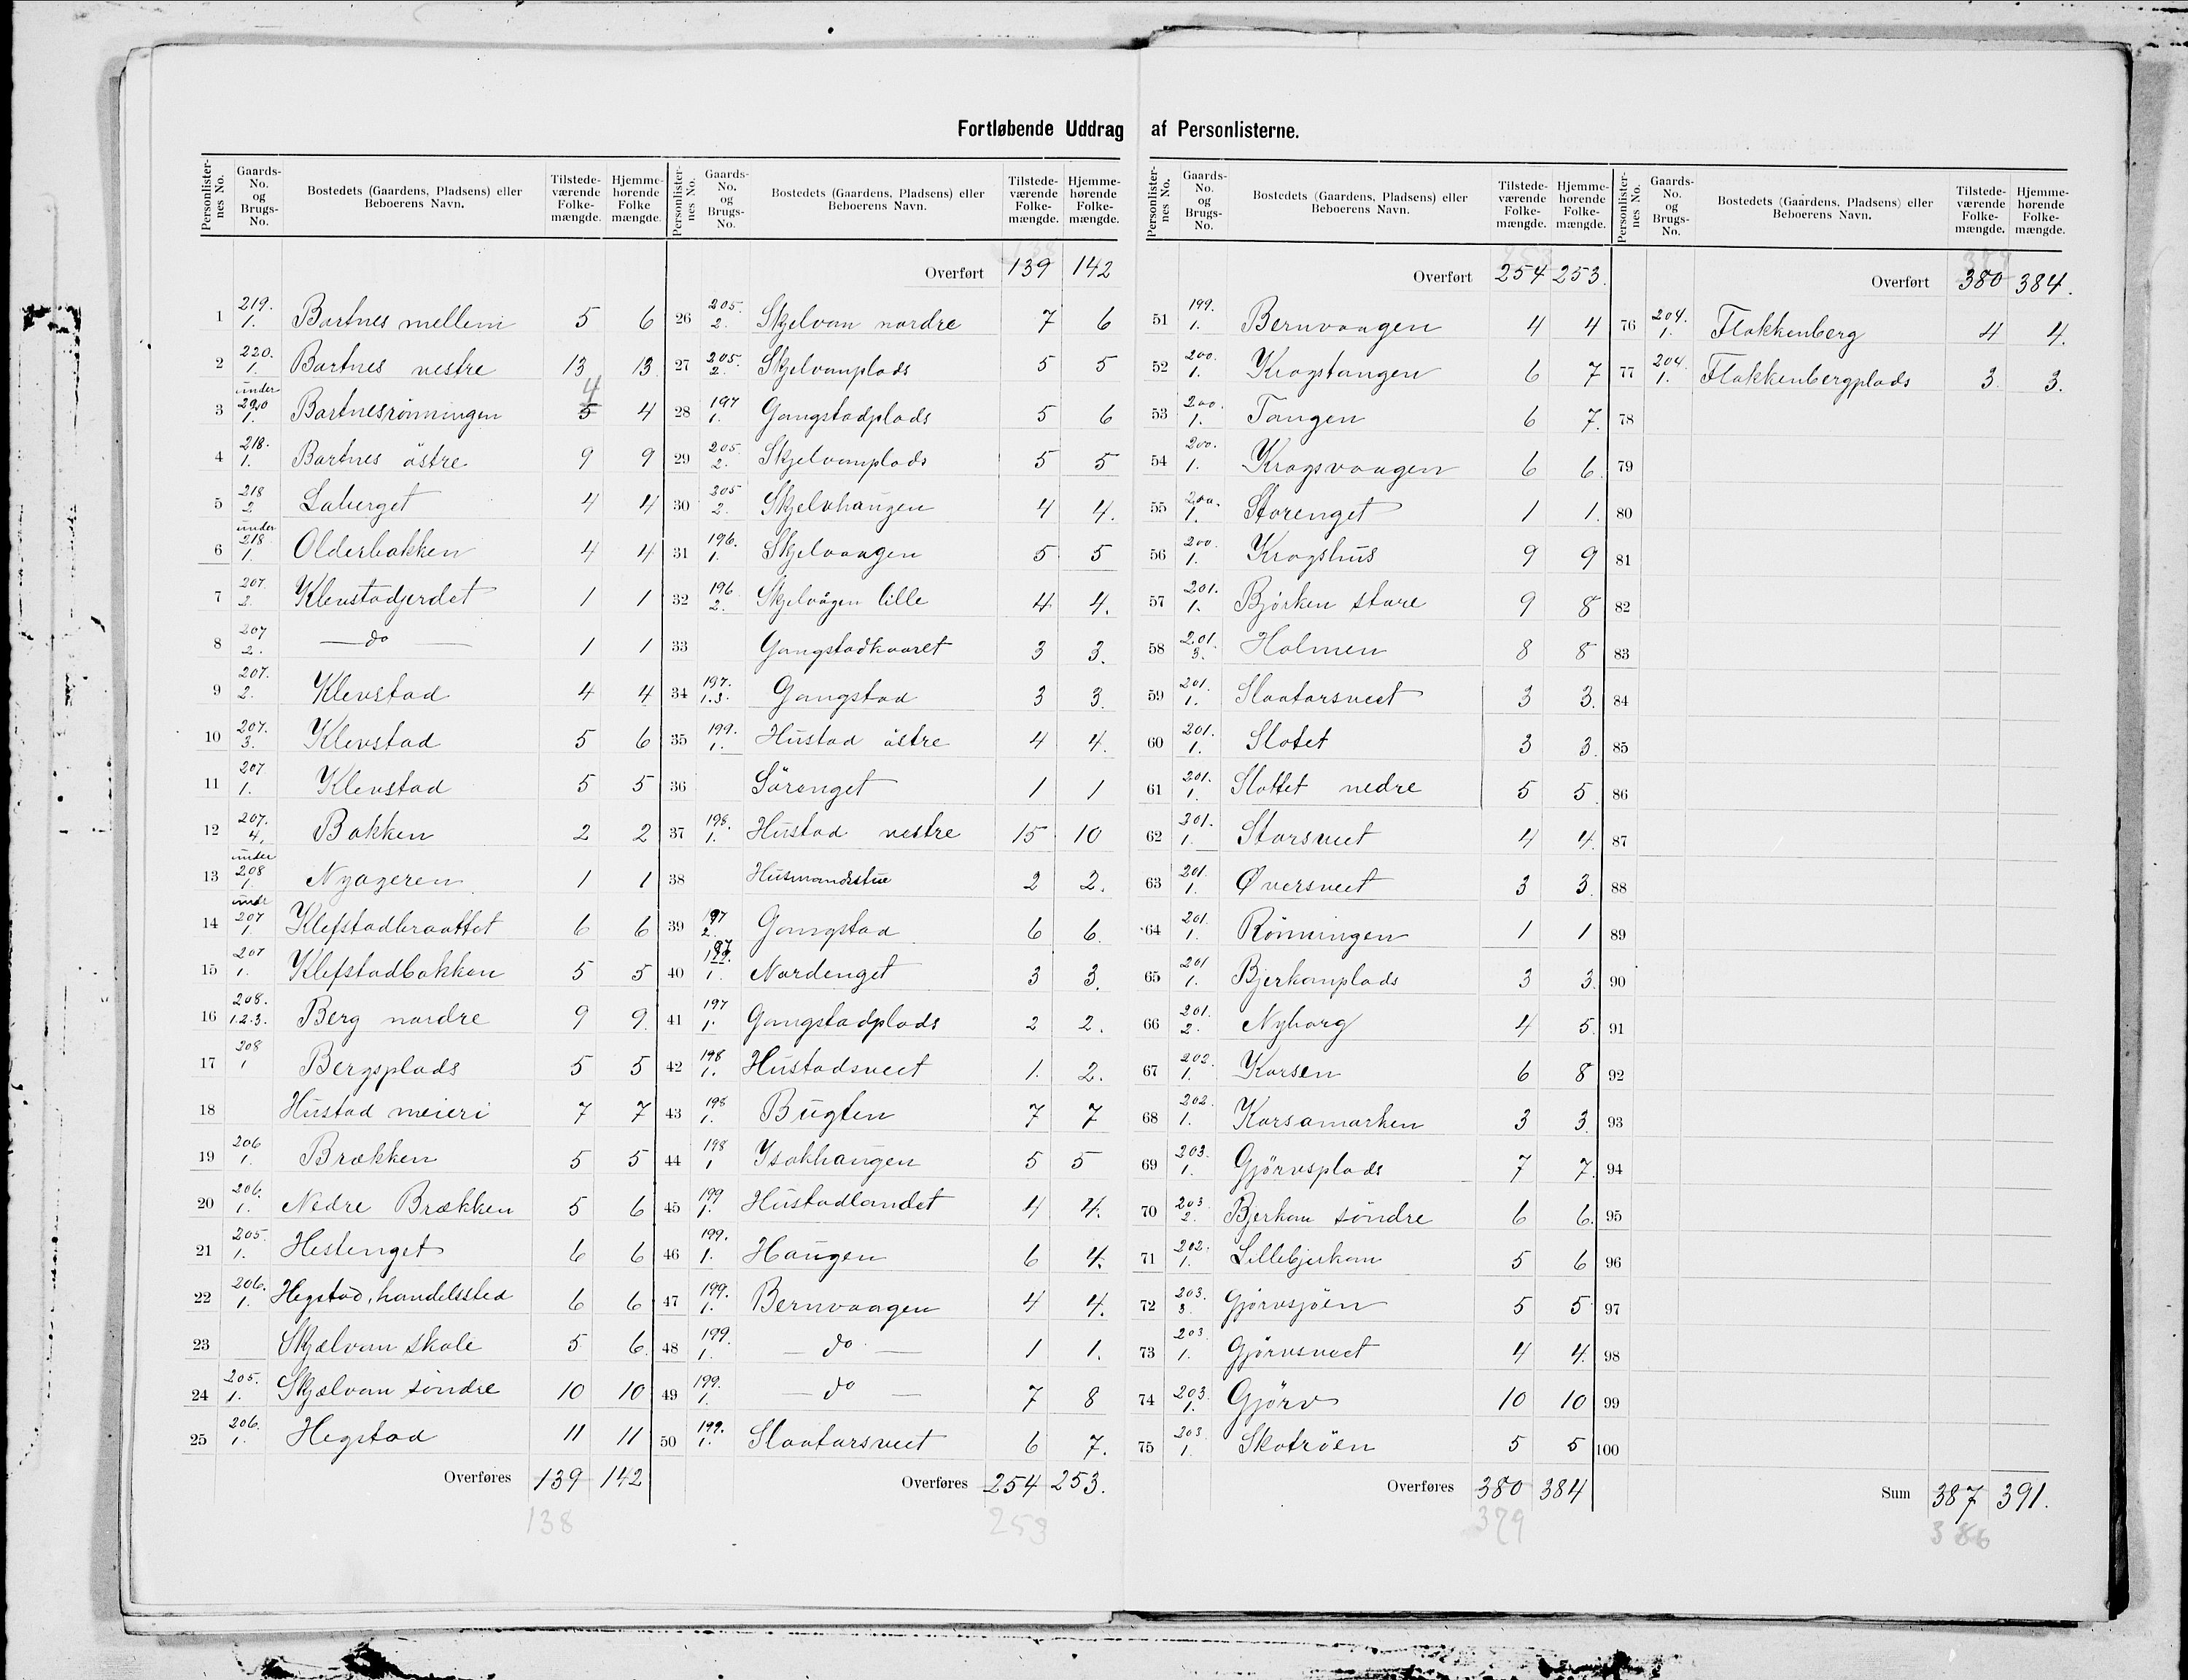 Fortløbende Uddrag af Personlisterne.
Personlisternes No. Gaards-No. og Brugs-No. Bostedets (Gaardens, Pladsens) eller Beboerens Navn. Tilstedeværende Folkemængde. Hjemmehørende Folkemængde.
1 219. 1. Bartnes mellem 5 6
2 220. 1. Bartnes vestre 13 13
3 under 220 1. Bartnesrönningen 5 4 4
4 218. 1. Bartnes östre 9 9
5 218 2 Laberget 4 4
6 under 218 1. Olderbakken 4 4
7 207. 2. Klevstadjerdet 1 1
8 207 2. — do — 1 1
9 207. 2. Klevstad 4 4
10 207. 3. Klevstad 5 6
11 207 1. Klevstad 5 5
12 207. 4. Bakken 2 2
13 under 208 1. Nyageren 1 1
14 under 207 1. Klefstadbraattet 6 6
15 207 1. Klefstadbakken 5 5
16 208. 1.2.3. Berg nordre 9 9
17 208 1 Bergsplads 5 5
18 Hustad meieri 7 7
19 206 1. Brækken 5 5
20 206. 1. Nedre Brækken 5 6
21 205. 1. Hestenget 6 6
22 206. 1. Hegstad, handelssted 6 6
23 Skjelvan skole 5 6
24 205. 1. Skjelvan söndre 10 10
25 206. 1. Hegstad 11 11
Overføres 139 142
138
Personlisternes No. Gaards-No. og Brugs-No. Bostedets (Gaardens, Pladsens) eller Beboerens Navn. Tilstedeværende Folkemængde. Hjemmehørende Folkemængde.
138
Overført 139 142
26 205. 2. Skjelvan nordre 7 6
27 205. 2. Skjelvanplads 5 5
28 197 1. Gangstadplads 5 6
29 205 2. Skjelvanplads 5 5
30 205 2. Skjelvhaugen 4 4.
31 196. 1. Skjelvaagen 5 5
32 196 2. Skjelvågen lille 4 4.
33 Gangstadkvaret 3 3.
34 197. 1.3. Gangstad 3 3.
35 199. 1. Hustad östre 4 4.
36 Sörenget 1 1
37 198. 1. Hustad vestre 15 10
38 Husmandsstue 2 2.
39 197 2. Gangstad 6 6.
40 1. Nordenget 3 3.
41 197 1. Gangstadplads 2 2.
42 198 1. Hustadsveet 1. 2.
43 198 1. Bugten 7 7
44 198 1 Ysakhaugen 5 5
45 199 1. Hustadlandet 4 4.
46 199. 1. Haugen 6 4.
47 199. 1. Bernvaagen 4 4.
48 199. 1. — do — 1 1.
49 199. 1. — do — 7 8
50 199. 1. Slaatarsveet 6 7.
Overføres 254 253.
253
Personlisternes No. Gaards-No. og Brugs-No. Bostedets (Gaardens, Pladsens) eller Beboerens Navn. Tilstedeværende Folkemængde. Hjemmehørende Folkemængde.
253
Overført 254 253.
51 199. 1. Bernvaagen 4 4
52 200. 1. Kragstangen 6 7
53 200. 1. Tangen 6 7.
54 200. 1. Kragsvaagen 6 6
55 200. 1. Storenget 1 1.
56 200. 1. Kragshus 9 9
57 201. 1. Björken store 9 8
58 201 3. Holmen 8 8
59 201. 1. Slaatarsveet 3 3.
60 201. 1. Slotet 3 3.
61 201. 1. Slottet nedre 5 5
62 301. 1. Storsveet 4 4.
63 201. 1. Øversveet 3 3.
64 201. 1. Rönningen 1 1
65 201 1. Bjerkanplads 3 3.
66 201. 2. Nyborg 4 5.
67 202. 1. Korsen 6 8
68 202. 1. Korsamarken 3 3.
69 203. 1. Gjörvsplads 7 7.
70 203. 2. Bjerkan söndre 6 6.
71 202. 1. Lillebjerkan 5 6
72 203. 3. Gjörvsjöen 5 5
73 203. 1. Gjörvsveet 4 4.
74 203. 1. Gjörv 10 10
75 203 1. Skotröen 5 5
Overføres 380 384
379
Personlisternes No. Gaards-No. og Brugs-No. Bostedets (Gaardens, Pladsens) eller Beboerens Navn. Tilstedeværende Folkemængde. Hjemmehørende Folkemængde.
379
Overført 380 384.
76 204. 1. Flakkenberg 4 4.
77 204. 1. Flakkenbergplads 3 3.
78
79
80
81
82
83
84
85
86
87
88
89
90
91
92
93
94
95
96
97
98
99
100
Sum 387 391.
386